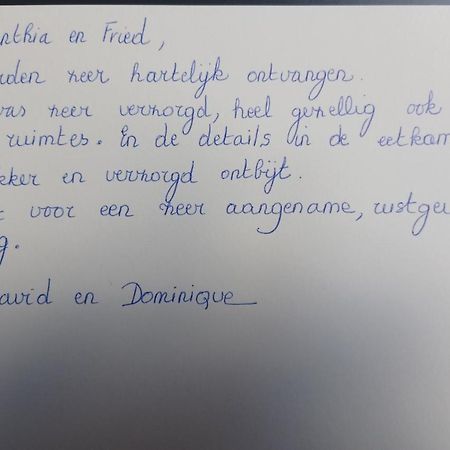 nthia en Fried,
rden zeer hartelijk ontvangen.
was zeer verzorgd, heel gezellig ook
ruimtes. En de details in de eetkam
kker en verzorgd ontbijt.
t voor een zeer aangename, rustgev
g.
avid en Dominique